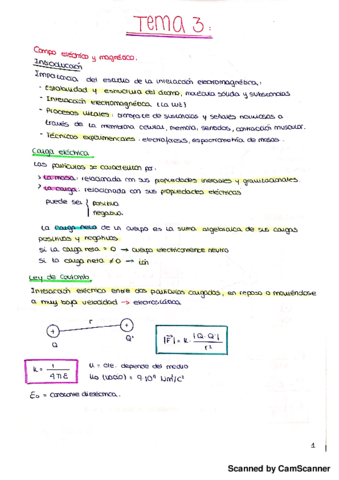 TEMA 3:
Campo eléctrico y magnético.
Introducción
Importancia del estudio de la interacción electromagnética:
- Estabilidad y estructura del átomo, molécula sólida y substancias
- Interacción electromagnética (la luz)
- Procesos vitales: transporte de sustancias y señales nerviosas a
través de la membrana celular, memoria, sentidos, contracción muscular.
- Técnicas experimentales: electroforesis, espectrometría de masas.
Carga eléctrica
Las partículas se caracterizan por:
> La masa: relacionada con sus propiedades inerciales y gravitacionales.
> La carga: relacionada con sus propiedades eléctricas
puede ser: positiva
negativa.
La carga neta de un cuerpo es la suma algebraica de sus cargas
positivas y negativas
Si la carga neta = 0 → cuerpo eléctricamente neutro
Si la carga neta ≠ 0 → ión
Ley de Coulomb.
Interacción eléctrica entre dos partículas cargadas, en reposo o moviéndose
a muy baja velocidad → electrostática.
+ r +
Q Q'
|F| = k · |Q·Q'| / r²
k = 1 / 4πε
k = cte. depende del medio
k₀ (vacío) = 9·10⁹ Nm²/C²
ε₀ = constante dieléctrica.
1
Scanned by CamScanner